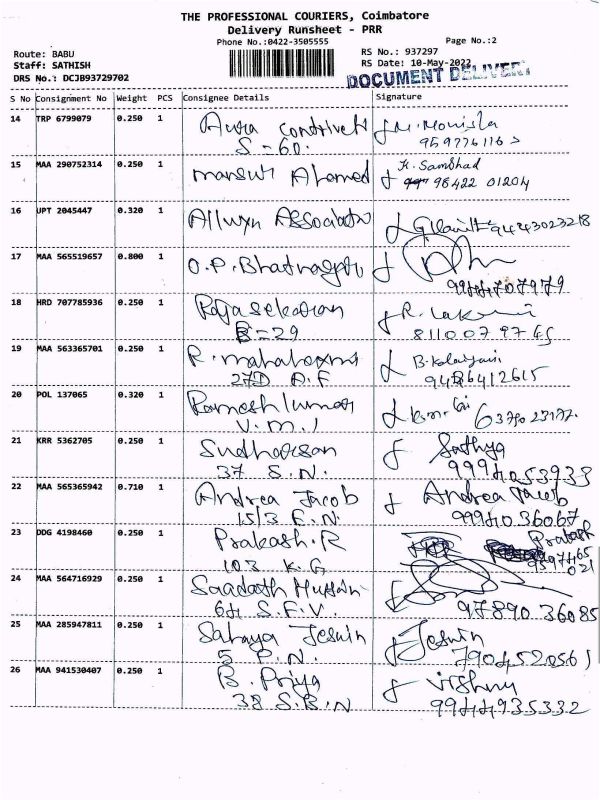 THE PROFESSIONAL COURIERS, Coimbatore
Delivery Runsheet - PRR
Phone No.:0422-3505555
Page No.:2
Route: BABU
RS No.: 937297
Staff: SATHISH
RS Date: 10-May-2022
DRS No.: DCJB93729702
DOCUMENT DELIVERY
S No Consignment No Weight PCS Consignee Details Signature
14 TRP 6799079 0.250 1
S-60.
15 MAA 290752314 0.250 1 mansur Ahamed K. Samshad
98422 01204
16 UPT 2045447 0.320 1 Allwyn Associates 9443023218
17 MAA 565519657 0.800 1 O.P. Bhatnagar
9944707979
18 HRD 707785936 0.250 1 Raja selvaran R. Laksmi
B=29 8110079745
19 MAA 563365701 0.250 1 R. mahalaxmi B. Kalayani
27D A.F 9486412615
20 POL 137065 0.320 1 Ramesh kumar
V.M.I
21 KRR 5362705 0.250 1 Sudharsan Sathya
37 S.N. 9994053933
22 MAA 565365942 0.710 1 Andrea Jacob Andrea Jacob
15/3 F.N. 9994036067
23 DDG 4198460 0.250 1 Prakash.R Prakash
103 K.G
24 MAA 564716929 0.250 1 Saadath Hussain
64 S.F.V. 97890 36085
25 MAA 285947811 0.250 1 Sahaya Jeswin Jeswin
5 P.N. 7904520561
26 MAA 941530407 0.250 1 B. Priya Vishnu
38 S.B.N 9944935332